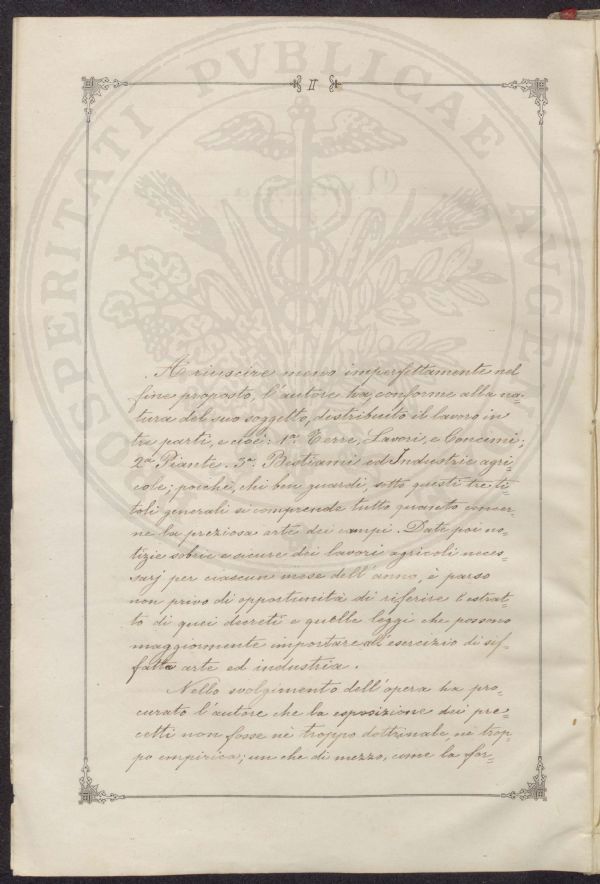 II
PROSPERITATI PVBLICAE AVGENDAE
A riuscire meno imperfettamente nel
fine proposto, l'autore ha, conforme alla na-
tura del suo soggetto, distribuito il lavoro in
tre parti, e cioè: 1a Terre, Lavori, e Concimi;
2a Piante. 3a Bestiami ed Industrie agri-
cole; poichè, chi ben guardi, sotto questi tre ti-
toli generali si comprende tutto quanto concer-
ne la preziosa arte dei campi. Date poi no-
tizie sobrie e sicure dei lavori agricoli neces-
sarj per ciascun mese dell'anno, è parso
non privo di opportunità di riferire l'estrat-
to di quei decreti e quelle leggi che possono
maggiormente importare all'esercizio di sif-
fatta arte ed industria.
Nello svolgimento dell'opera ha pro-
curato l'autore che la esposizione dei pre-
cetti non fosse nè troppo dottrinale, nè trop-
po empirica; un che di mezzo, come la for-